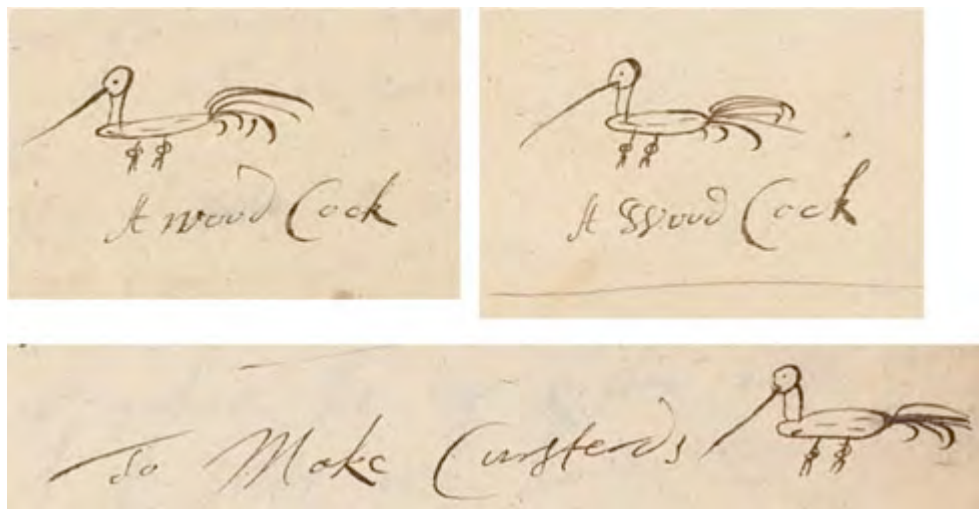 A wood Cock
A Wood Cock
To Make Cunsterds